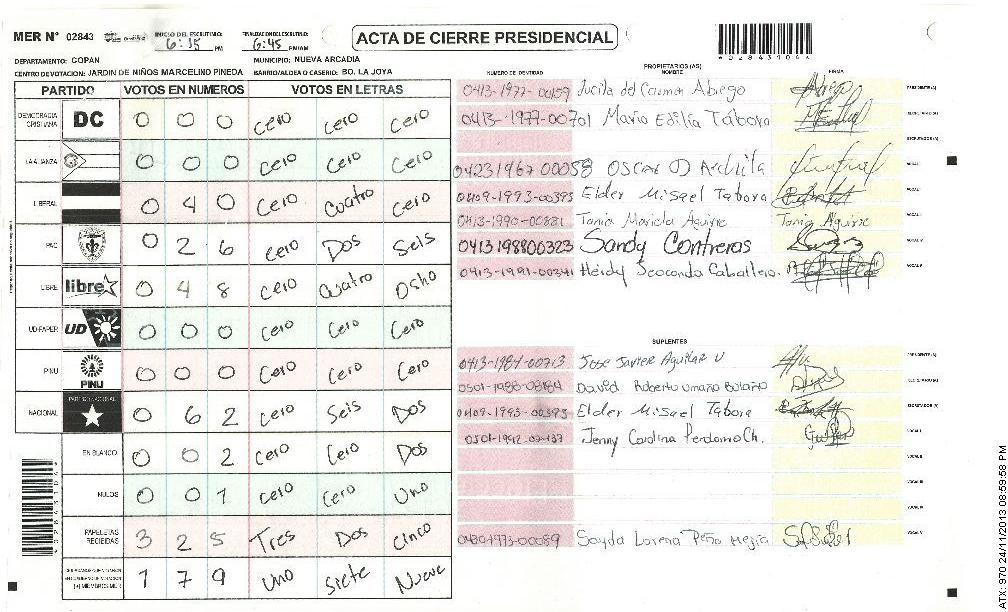 MER Nº 02843 INICIO DEL ESCRUTINIO: 6:15 PM FINALIZACION DEL ESCRUTINIO: 6:45 PM/AM ACTA DE CIERRE PRESIDENCIAL
DEPARTAMENTO: COPAN MUNICIPIO: NUEVA ARCADIA
CENTRO DE VOTACION: JARDIN DE NIÑOS MARCELINO PINEDA BARRIO/ALDEA O CASERIO: BO. LA JOYA
PARTIDO VOTOS EN NUMEROS VOTOS EN LETRAS
DEMOCRACIA CRISTIANA DC 0 0 0 Cero Cero Cero
LA ALIANZA 0 0 0 Cero Cero Cero
LIBERAL 0 4 0 Cero Cuatro Cero
PAC 0 2 6 Cero Dos Seis
LIBRE libre 0 4 8 Cero Cuatro Osho
UD-FAPER UD 0 0 0 Cero Cero Cero
PINU PINU 0 0 0 Cero Cero Cero
NACIONAL PARTIDO NACIONAL 0 6 2 Cero Seis Dos
EN BLANCO 0 0 2 Cero Cero Dos
NULOS 0 0 1 Cero Cero Uno
PAPELETAS RECIBIDAS 3 2 5 Tres Dos Cinco
(+) MIEMBROS MER 1 7 9 Uno Siete Nueve
PROPIETARIOS (AS)
NUMERO DE IDENTIDAD NOMBRE FIRMA
0413-1977-00159 Lucila del Carmen Abrego Abrego PRESIDENTE (A)
0413-1977-00701 Maria Edilia Tabora SECRETARIO (A)
ESCRUTADOR (A)
04231967 00058 Oscar O Archila VOCAL I
0409-1993-00393 Elder Misael Tabora VOCAL II
0413-1990-00881 Tania Mariela Aguirre Tania Aguirre VOCAL III
0413 198800323 Sandy Contreras VOCAL IV
0413-1991-00341 Heidy Caballero. VOCAL V
SUPLENTES
0413-1984-00713 Jose Javier Aguilar V PRESIDENTE (A)
0501-1988-08184 David Roberto Umaña Bolaños SECRETARIO (A)
0409-1993-00393 Elder Misael Tabora ESCRUTADOR (A)
Jenny Carolina Perdomo Ch. VOCAL I
VOCAL II
VOCAL III
VOCAL IV
Sayda Lorena Peña Mejia VOCAL V
ATX: 970 24/11/2013 08:59:58 PM